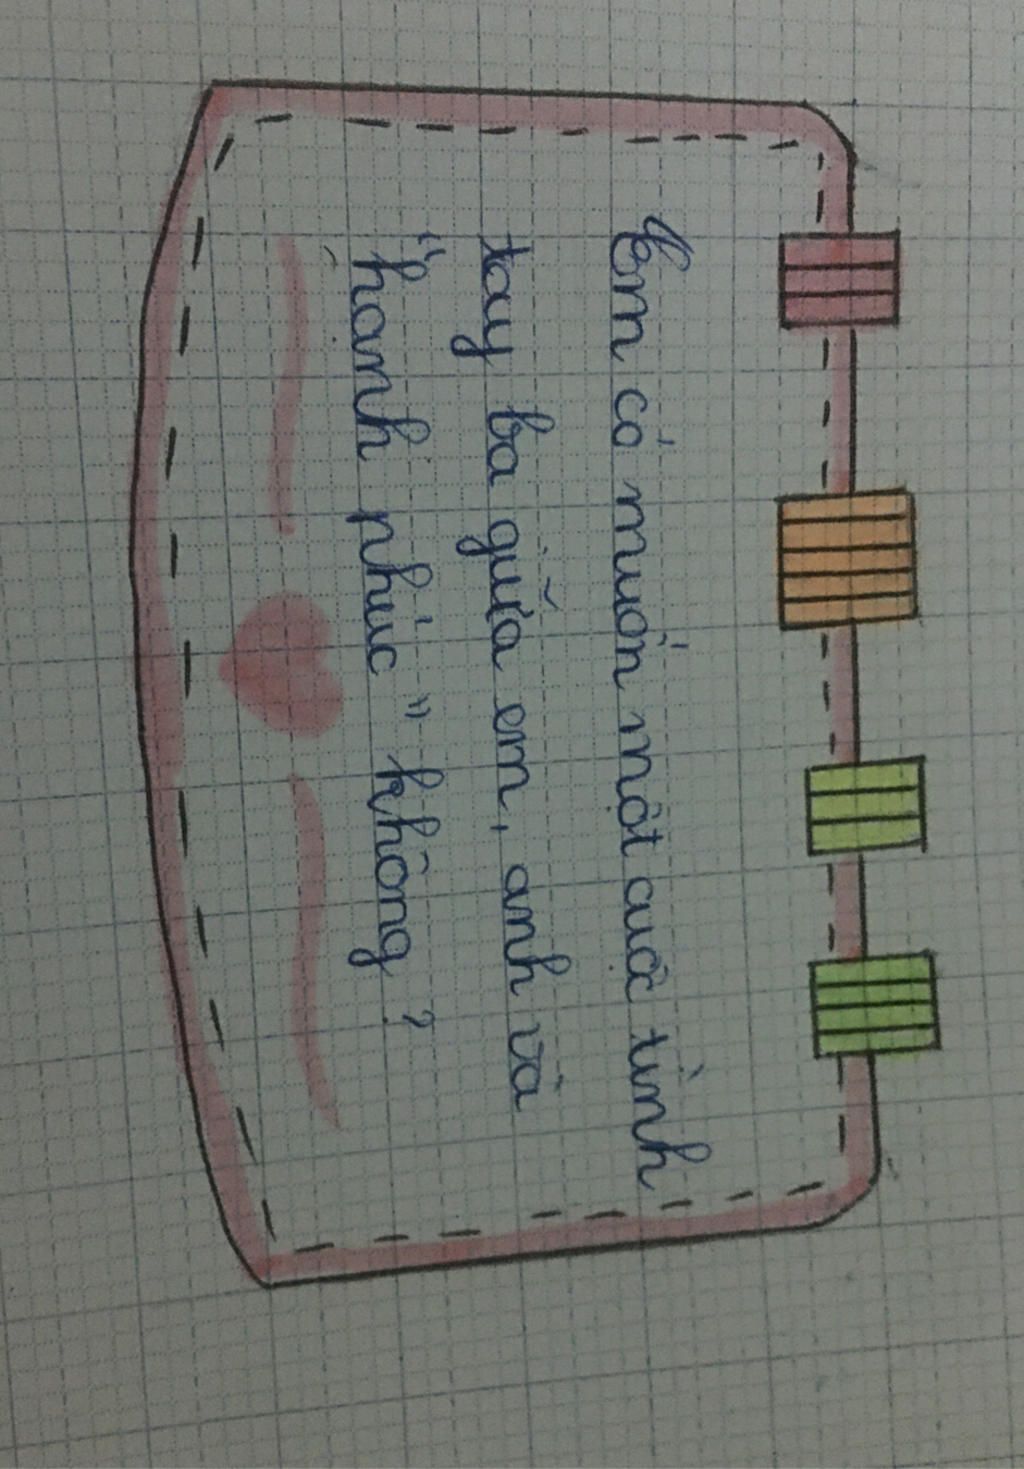 Em có muốn một cuộc tình
tay ba giữa em, anh và
"hạnh phúc" không?